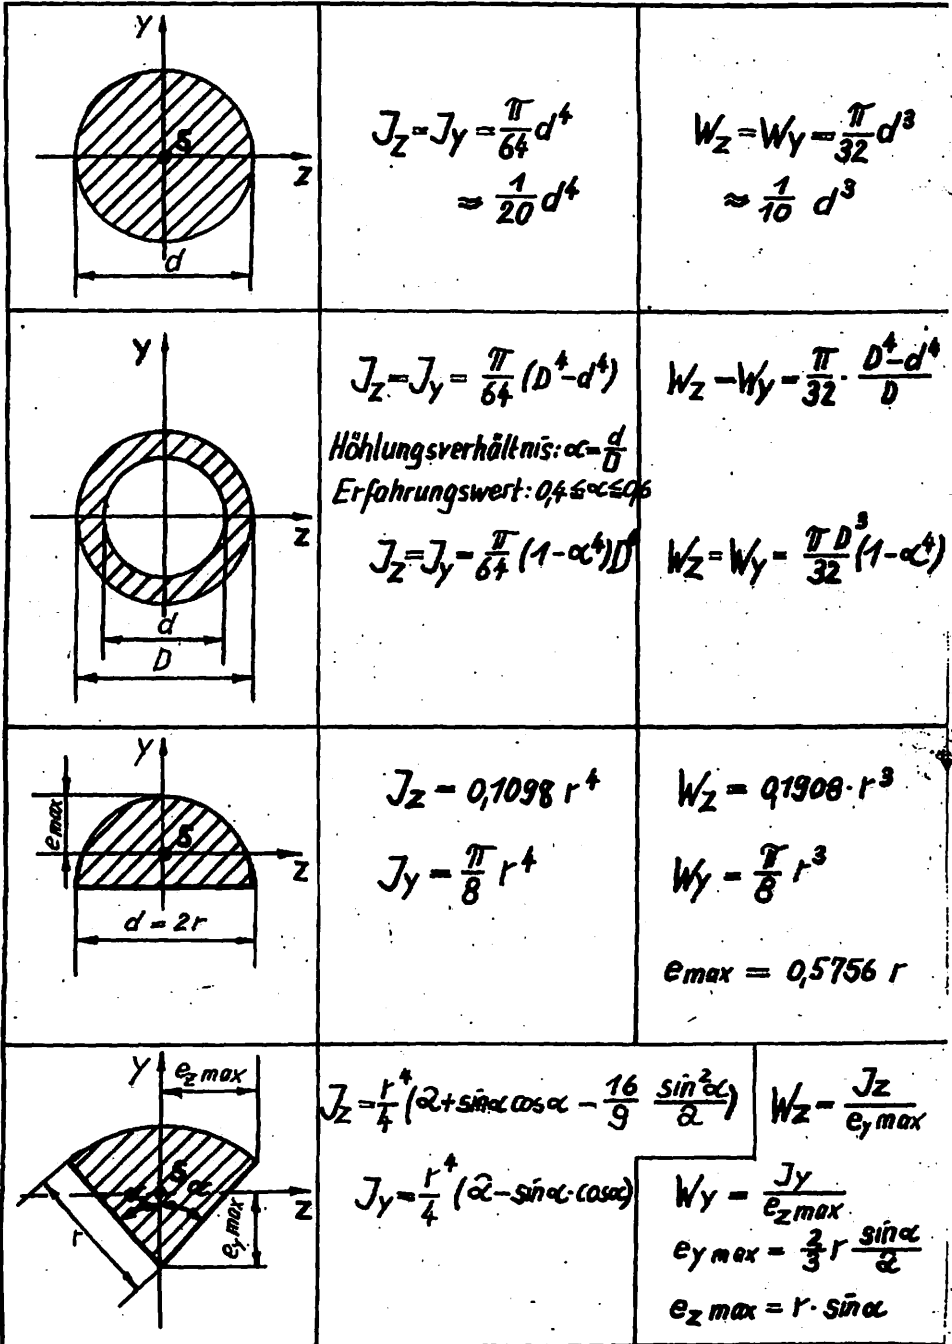 y
S
z
d
J_z = J_y = π/64 d⁴
≈ 1/20 d⁴
W_z = W_y = π/32 d³
≈ 1/10 d³
y
z
d
D
J_z = J_y = π/64 (D⁴-d⁴)
Höhlungsverhältnis: α = d/D
Erfahrungswert: 0,4 ≦ α ≦ 0,6
J_z = J_y = π/64 (1-α⁴) D⁴
W_z = W_y = π/32 · (D⁴-d⁴)/D
W_z = W_y = πD³/32 (1-α⁴)
y
e max
S
z
d = 2r
J_z = 0,1098 r⁴
J_y = π/8 r⁴
W_z = 0,1908 · r³
W_y = π/8 r³
e max = 0,5756 r
y
e_z max
S
α α
z
r
e_y max
J_z = r⁴/4 (α̂ + sinα cosα - 16/9 sin²α/α̂)
J_y = r⁴/4 (α̂ - sinα · cosα)
W_z = J_z/e_y max
W_y = J_y/e_z max
e_y max = 2/3 r sinα/α̂
e_z max = r · sinα